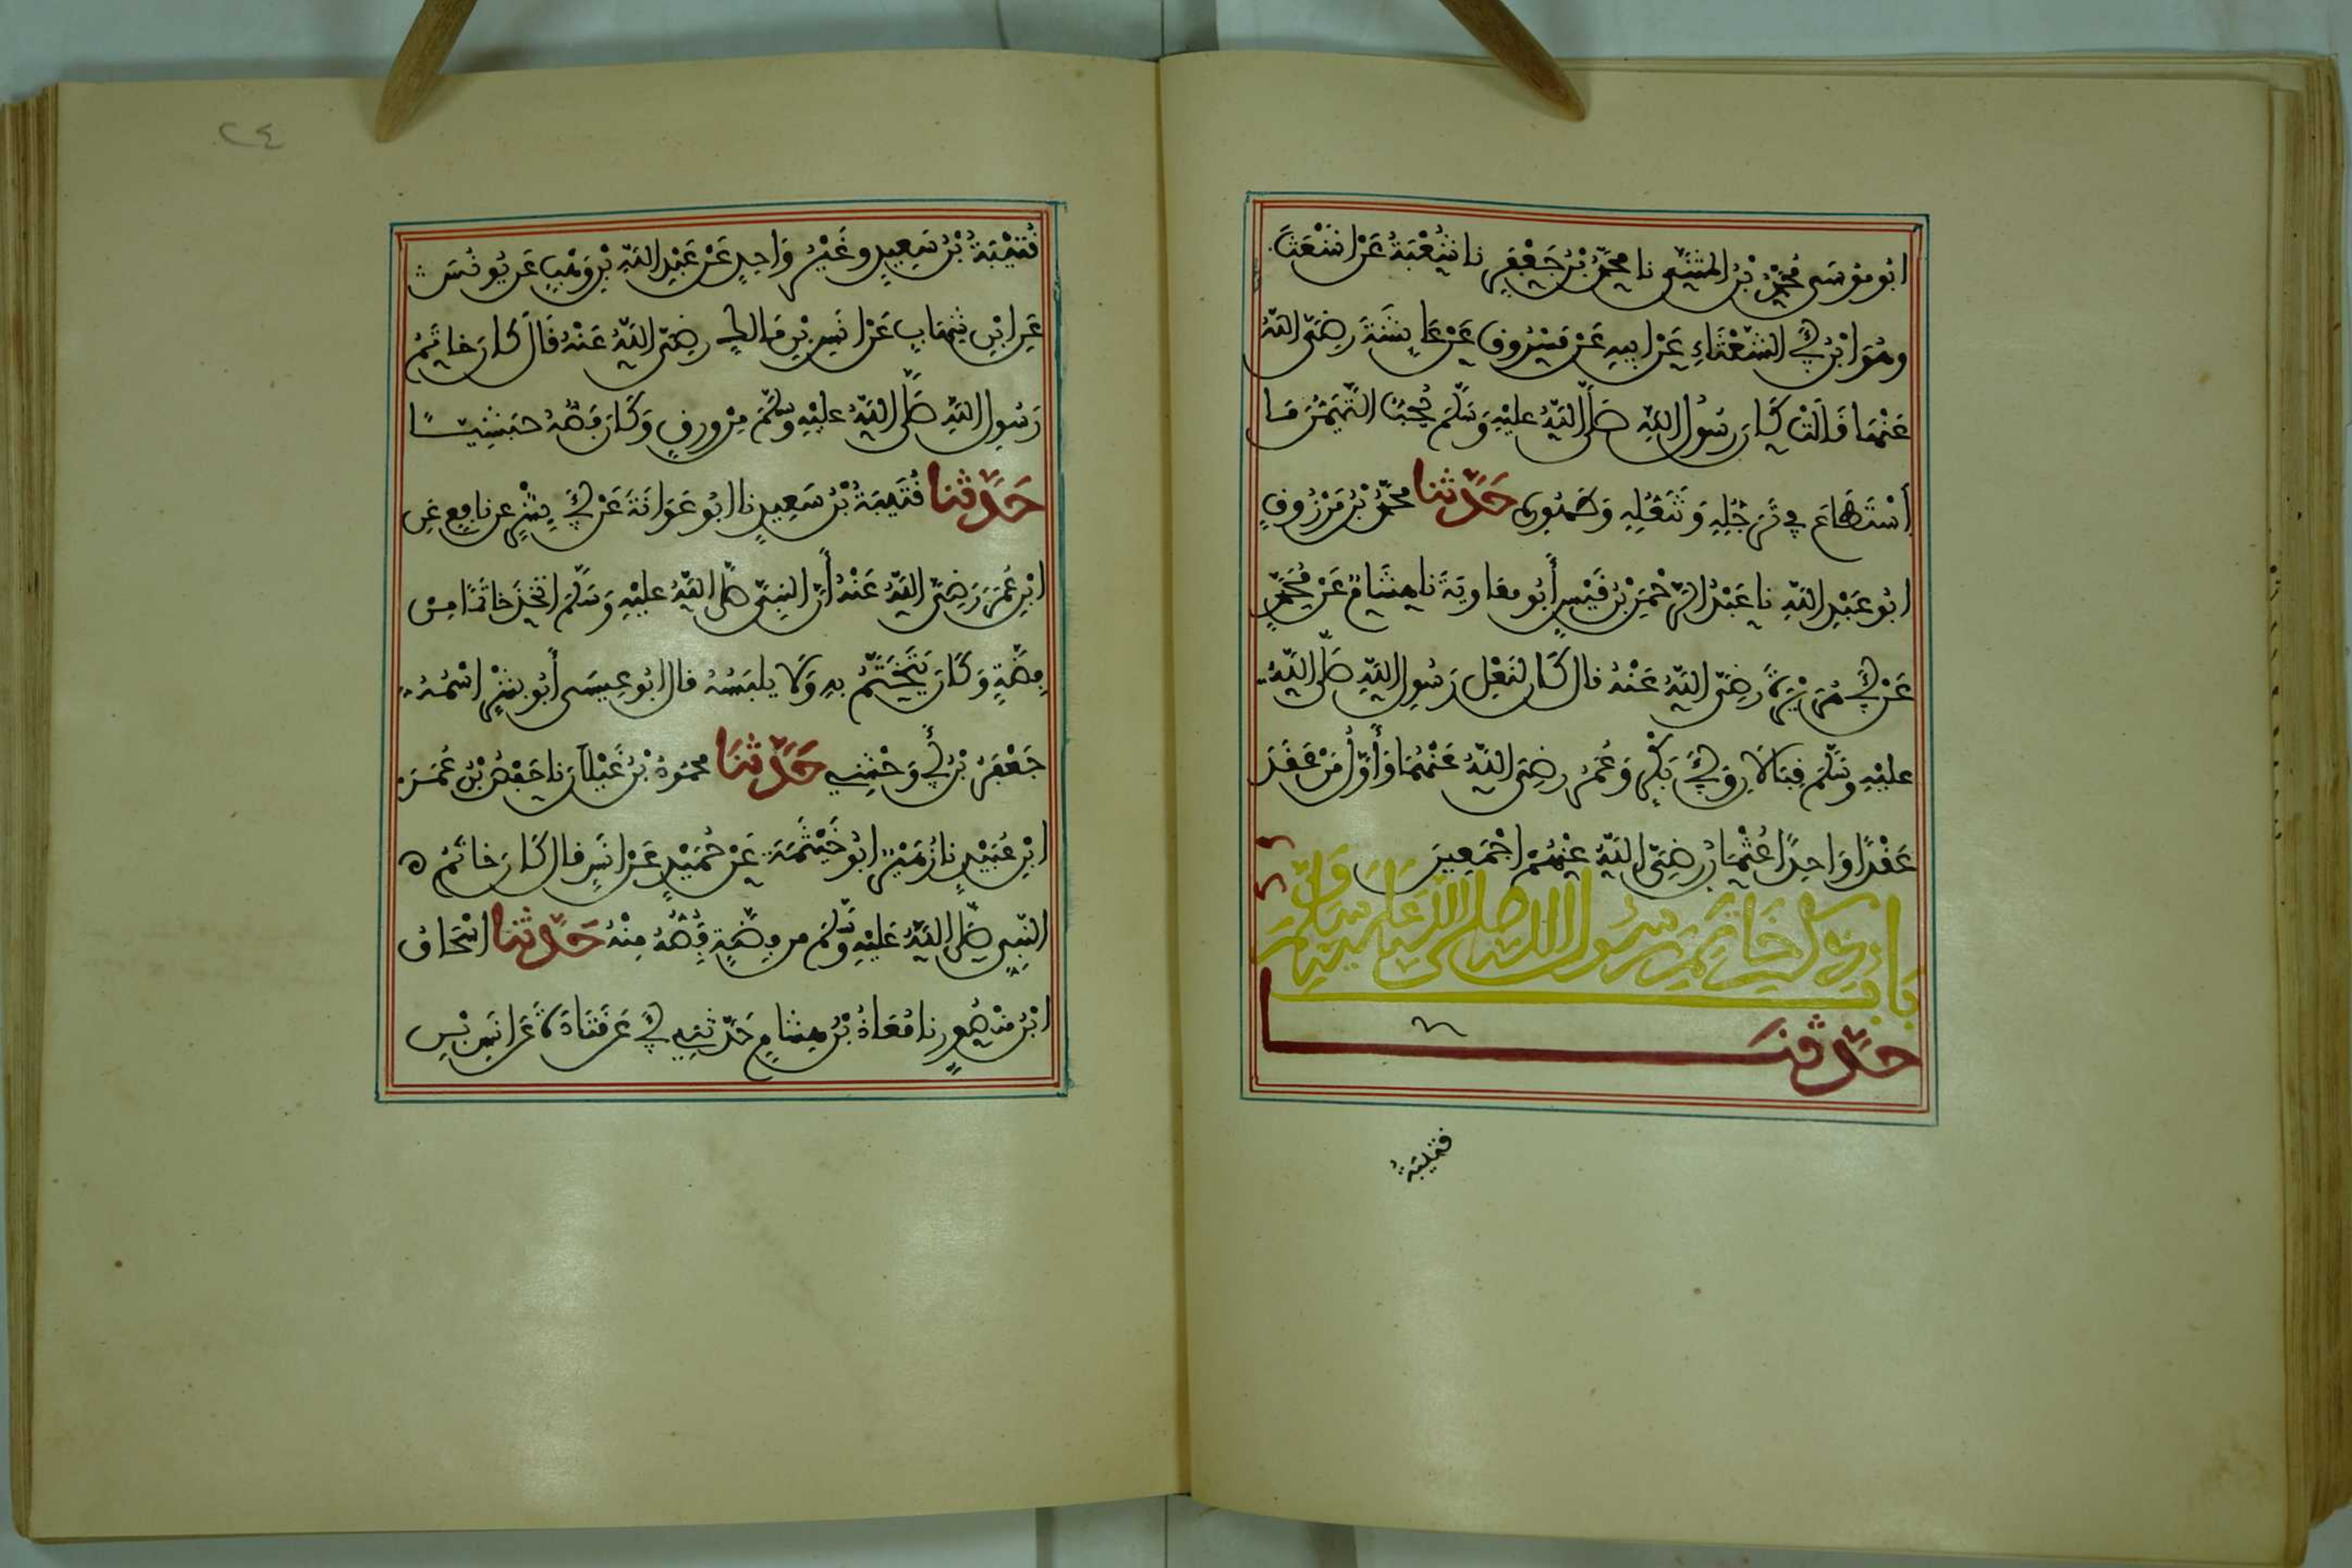 ابُو مُوسَى مُحَمَّدُ بْنُ المُثَنَّى نا مُحَمَّدُ بْنُ جَعْفَرٍ نا شُعْبَةُ عَنْ اشْعَثَ
وهُوَ ابْنُ أَبِي الشَّعْثَاءِ عَنْ ابِيهِ عَنْ مَسْرُوقٍ عَنْ عَايِشَةَ رضِىَ اللَّهُ
عَنْهَا قَالَتْ كَانَ رسُولُ اللَّهِ صَلَّى اللَّهُ عليْهِ وَسَلَّمَ يُحِبُّ التَّيَمُّنَ مَا
اسْتَطَاعَ فِي تَرَجُّلِهِ وَتَنَعُّلِهِ وَطُهُورِهِ حَدَّثَنَا مُحَمَّدُ بْنُ مَرْزُوقٍ
ابُو عَبْدِ اللَّهِ نا عَبْدُ الرَّحْمَنِ بْنُ قَيْسٍ أَبُو معَاوِيَةَ نا هِشَامٌ عَنْ مُحَمَّدٍ
عَنْ أَبِي هُرَيْرَةَ رضِىَ اللَّهُ عَنْهُ قال كَانَ لنَعْلِ رَسُولِ اللَّهِ صَلَّى اللَّهُ
عليْهِ وسَلَّمَ قِبَالَانِ وَأَبِي بَكْرٍ وَعُمَرَ رضِىَ اللَّهُ عَنْهُمَا وَأَوَّلُ مَنْ عَقَدَ
عَقْدًا وَاحِدًا عُثْمَانُ رضِىَ اللَّهُ عَنْهُمْ اجْمَعِينَ
بَابُ ذِكْرِ خَاتَمِ رَسُولِ اللَّهِ صَلَّى اللَّهُ عَلَيْهِ وَسَلَّمَ
حَدَّثَنَا
قُتَيْبَةُ
٢٤
قُتَيْبَةُ بْنُ سَعِيدٍ وغَيْرُ وَاحِدٍ عَنْ عَبْدِ اللَّهِ بْنِ وَهْبٍ عَن يُونُسَ
عَنِ ابْنِ شِهَابٍ عَنْ انَسِ بْنِ مَالِكٍ رضِىَ اللَّهُ عَنْهُ قَالَ كَانَ خَاتَمُ
رَسُولِ اللَّهِ صَلَّى اللَّهُ عليْهِ وسَلَّمَ مِنْ وَرِقٍ وَكَانَ فَصُّهُ حَبَشِيًّا
حَدَّثَنَا قُتَيبَةُ بْنُ سَعِيدٍ نا ابُو عَوَانَةَ عَنْ أَبِي بِشْرٍ عن نافِعٍ عَنِ
ابْنِ عُمَرَ رَضِىَ اللَّهُ عَنْهُ أَنَّ النبِىَّ صَلَّى اللَّهُ عليْهِ وَسَلَّمَ اتَّخَذَ خَاتَمًا مِنْ
فِضَّةٍ وَكَانَ يَتَخَتَّمُ بهِ وَلَا يلبَسُهُ قال ابُو عِيسَى أَبُو بِشْرٍ اسْمُهُ
جَعْفَرُ بْنُ أَبِي وَحْشِيٍّ حَدَّثَنَا مَحمُودُ بْنُ غَيْلَانَ نا حَفْصُ بْنُ عُمَرَ
ابْنِ عُبَيْدٍ نا زُهَيْرٌ ابُو خَيْثَمَةَ عَنْ حُمَيْدٍ عَنْ انَسٍ قال كَانَ خَاتَمُ
النَّبِىِّ صَلَّى اللَّهُ عَلَيْهِ وسَلَّمَ من فِضَّةٍ فَصُّهُ مِنْهُ حَدَّثَنَا اسْحَاقُ
ابْنُ مَنْصُورٍ نا مُعَاذُ بْنُ هِشَامٍ حَدَّثَنِي أَبِي عَن قَتَادَةَ عَن انَسِ بْنِ